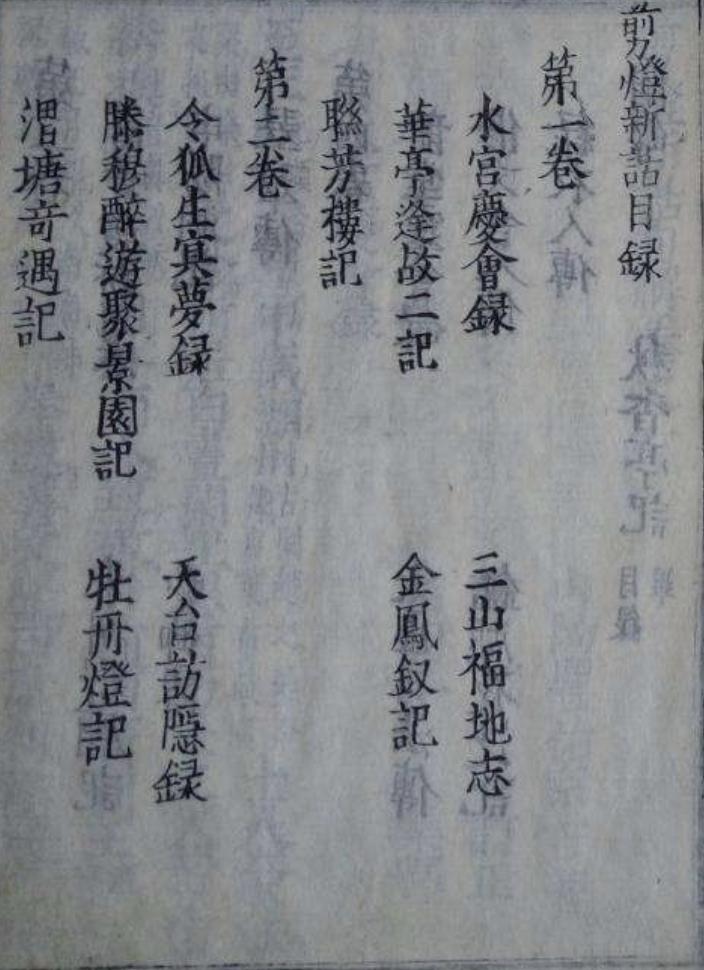 剪燈新話目録
第一卷
水宮慶會録　三山福地志
華亭逢故二記　金鳳釵記
聮芳樓記
第二卷
令狐生冥夢録　天台訪隱録
滕穆醉遊聚景園記　牡丹燈記
渭塘竒遇記